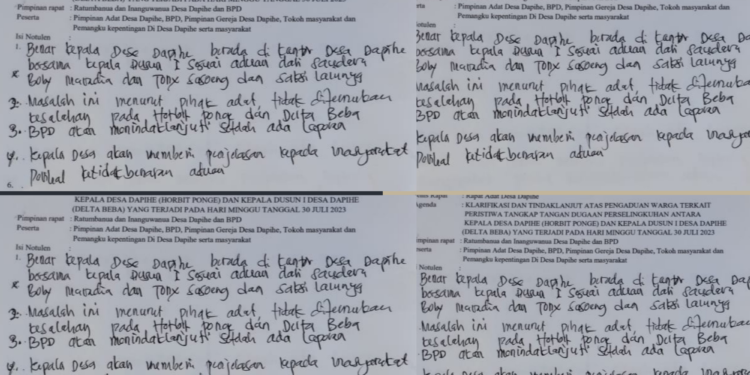 Pimpinan rapat : Ratumbanua dan Inanguwanua Desa Dapihe dan BPD
Peserta : Pimpinan Adat Desa Dapihe, BPD, Pimpinan Gereja Desa Dapihe, Tokoh masyarakat dan
Pemangku kepentingan Di Desa Dapihe serta masyarakat
Isi Notulen :
1. Benar kepala Desa Dapihe berada di kantor Desa Dapihe
bersama kepala Dusun I Sesuai aduan dari saudera
* Boby maradia dan Tony Sasoeng dan saksi lainnya
2. Masalah ini menurut pihak adat, tidak ditemukan
kesalahan pada Horbit ponge dan Delta Beba
3. BPD akan menindaklanjuti setelah ada laporan
4. Kepala Desa akan memberi penjelasan kepada masyarakat
ketidakbenaran aduan
6.
: Pimpinan Adat Desa Dapihe, BPD, Pimpinan Gereja Desa Dapihe, Tokoh masyarakat dan
Pemangku kepentingan Di Desa Dapihe serta masyarakat
Notulen :
Benar kepala Desa Dapihe berada di kantor Desa
bersama kepala Dusun I Sesuai aduan dari saudera
Boby maradia dan Tony Sasoeng dan saksi lainnya
Masalah ini menurut pihak adat, tidak
kesalahan pada Horbit ponge dan Delta Beba
BPD akan menindaklanjuti setelah ada laporan
Kepala Desa akan memberi penjelasan kepada
ketidakbenaran aduan
KEPALA DESA DAPIHE (HORBIT PONGE) DAN KEPALA DUSUN I DESA DAPIHE
(DELTA BEBA) YANG TERJADI PADA HARI MINGGU TANGGAL 30 JULI 2023
Pimpinan rapat : Ratumbanua dan Inanguwanua Desa Dapihe dan BPD
Peserta : Pimpinan Adat Desa Dapihe, BPD, Pimpinan Gereja Desa Dapihe, Tokoh masyarakat dan
Pemangku kepentingan Di Desa Dapihe serta masyarakat
Isi Notulen :
1. Benar kepala Desa Dapihe berada di kantor Desa Dapihe
bersama kepala Dusun I Sesuai aduan dari saudera
* Boby maradia dan Tony Sasoeng dan saksi lainnya
2. Masalah ini menurut pihak adat, tidak ditemukan
kesalahan pada Horbit ponge dan Delta Beba
3. BPD akan menindaklanjuti setelah ada laporan
4. Kepala Desa akan memberi penjelasan kepada masyarakat
: Rapat Adat Desa Dapihe
genda : KLARIFIKASI DAN TINDAKLANJUT ATAS PENGADUAN WARGA TERKAIT
PERISTIWA TANGKAP TANGAN DUGAAN PERSELINGKUHAN ANTARA
KEPALA DESA DAPIHE (HORBIT PONGE) DAN KEPALA DUSUN I DESA DAPIHE
(DELTA BEBA) YANG TERJADI PADA HARI MINGGU TANGGAL 30 JULI 2023
impinan rapat : Ratumbanua dan Inanguwanua Desa Dapihe dan BPD
eserta : Pimpinan Adat Desa Dapihe, BPD, Pimpinan Gereja Desa Dapihe, Tokoh masyarakat dan
Pemangku kepentingan Di Desa Dapihe serta masyarakat
Notulen :
Benar kepala Desa Dapihe berada di kantor Desa
bersama kepala Dusun I Sesuai aduan dari saudera
Boby maradia dan Tony Sasoeng dan saksi lainnya
Masalah ini menurut pihak adat, tidak
kesalahan pada Horbit ponge dan Delta Beba
BPD akan menindaklanjuti setelah ada laporan